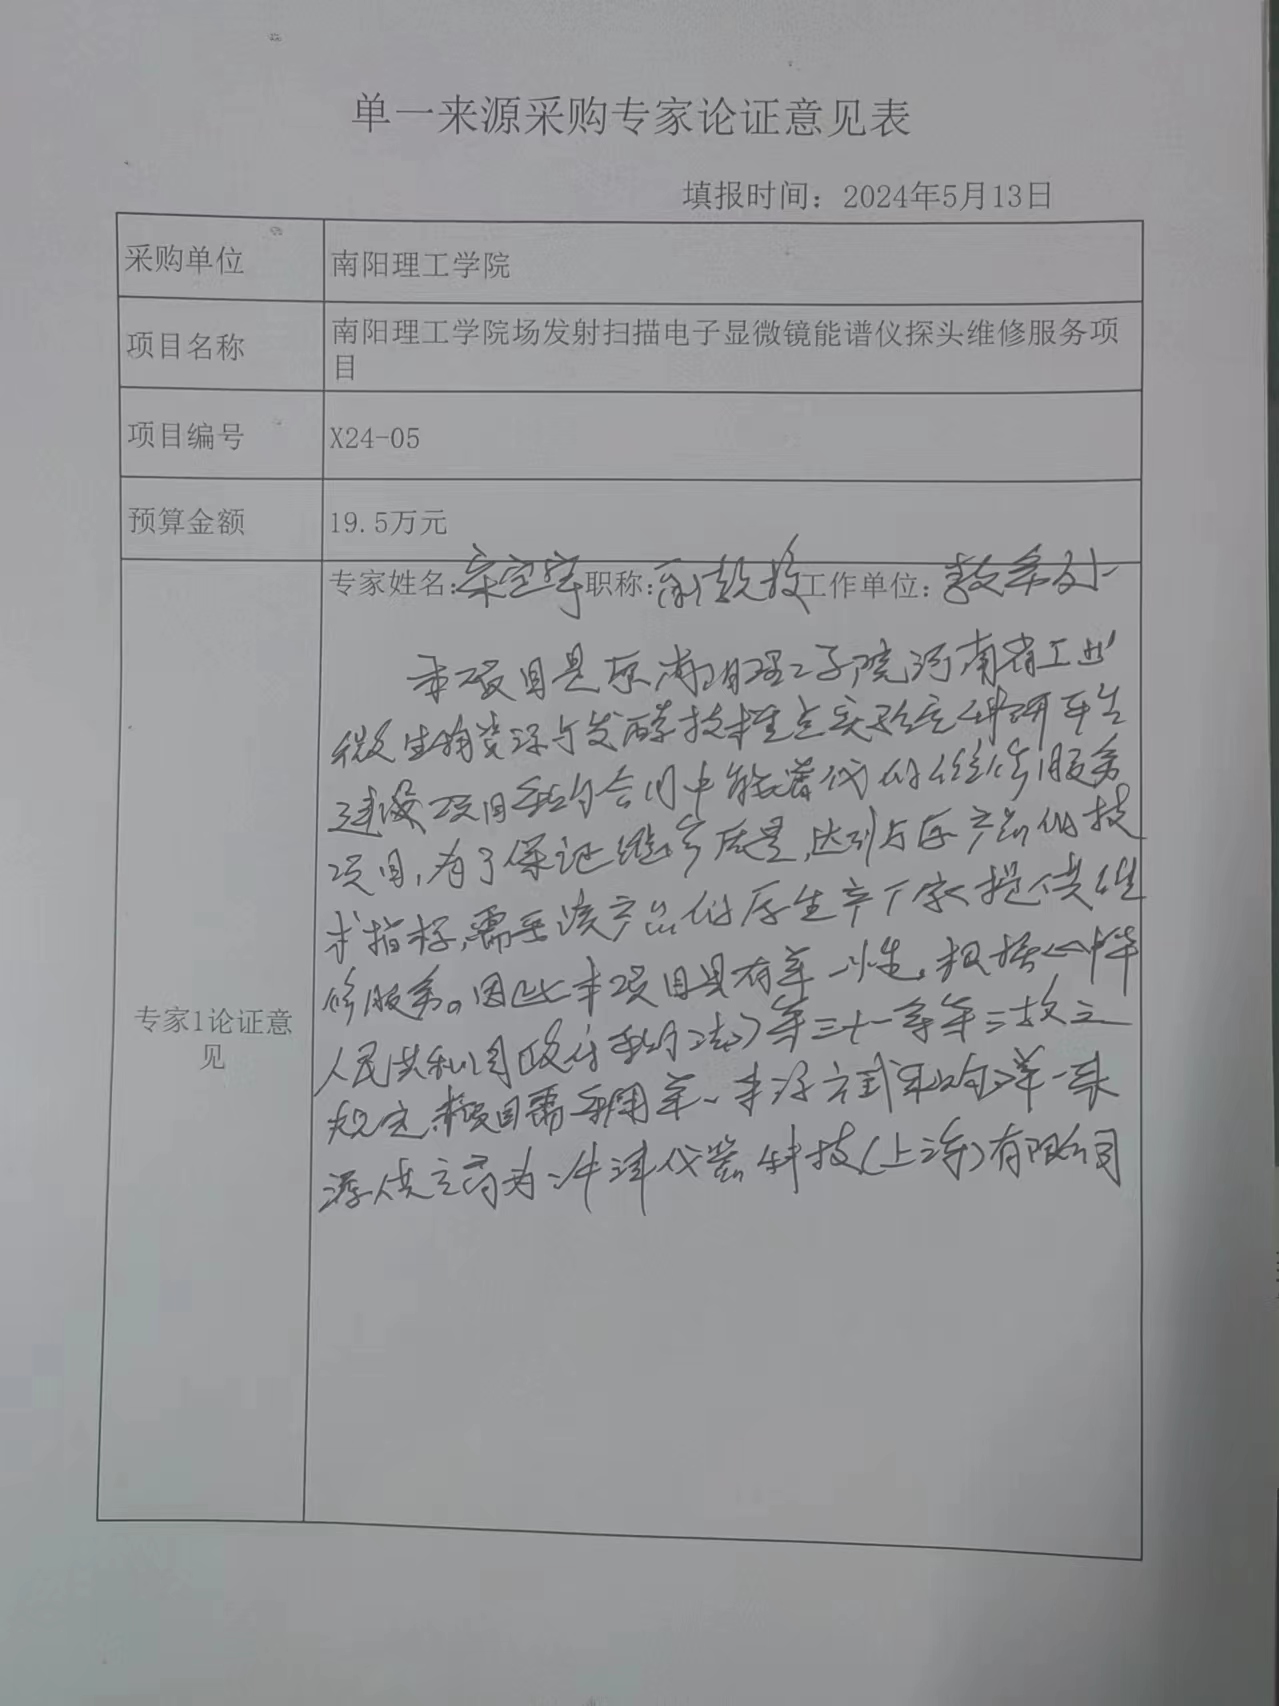 单一来源采购专家论证意见表
填报时间：2024年5月13日
采购单位
南阳理工学院
项目名称
南阳理工学院场发射扫描电子显微镜能谱仪探头维修服务项
目
项目编号
X24-05
预算金额
19.5万元
专家1论证意
见
专家姓名：宋宜 职称：副教授 工作单位：教务处
本项目是原南阳理工学院河南省工业
微生物资源与发酵技术重点实验室科研平台
建设项目采购合同中能谱仪的维修服务
项目，为了保证维修质量，达到与原产品的技
术指标，需要该产品的原生产厂家提供维
修服务。因此本项目具有单一性。根据《中华
人民共和国政府采购法》第三十一条第三款之
规定，本项目需采用单一来源方式采购，单一来
源供应商为 津仪器科技（上海）有限公司